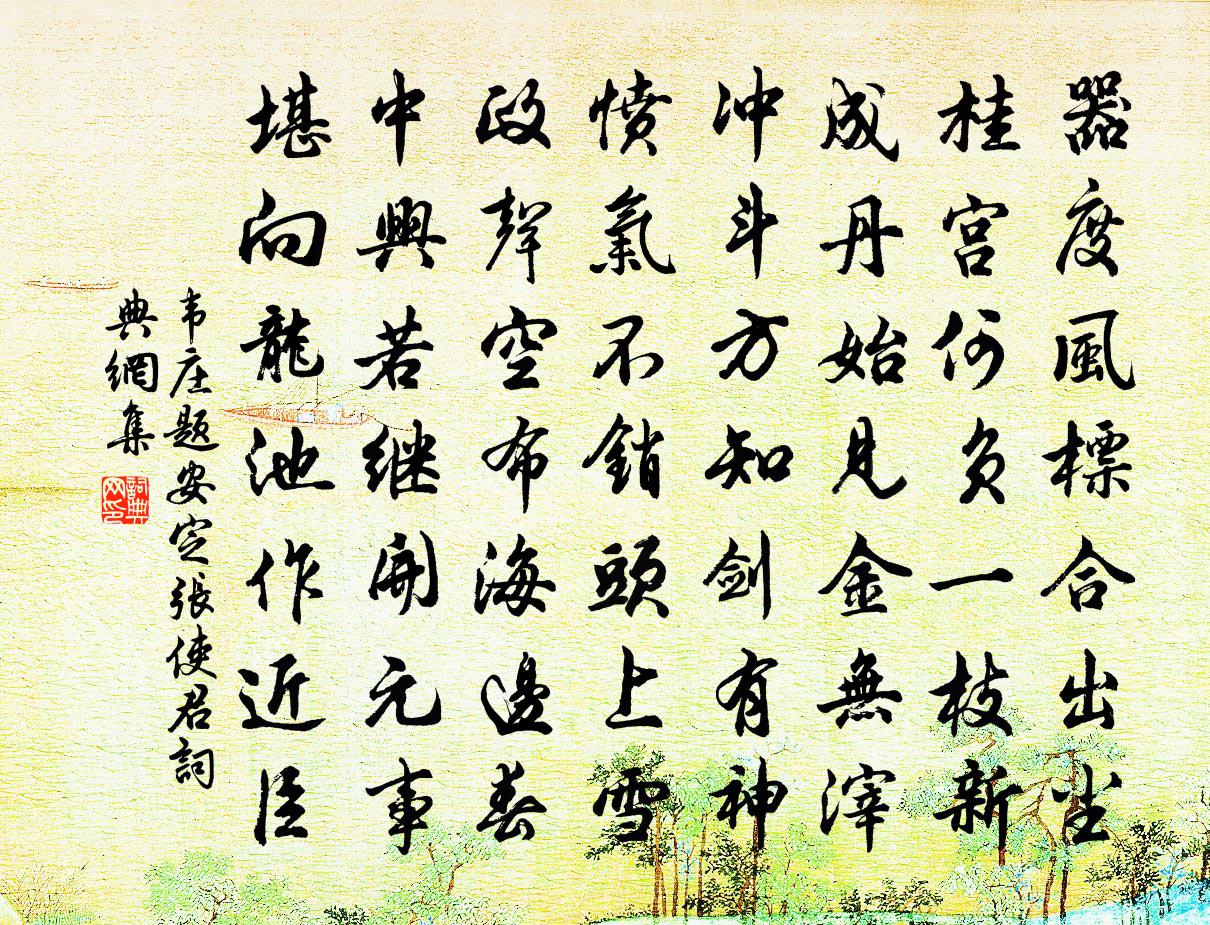 器度風標合出尘
桂宫何负一枝新
成丹始見金無滓
冲斗方知剑有神
愤氣不銷頭上雪
政聲空布海邊春
中興若继開元事
堪向龍池作近臣
韦庄题安定張使君詞
典網集
詞典网印